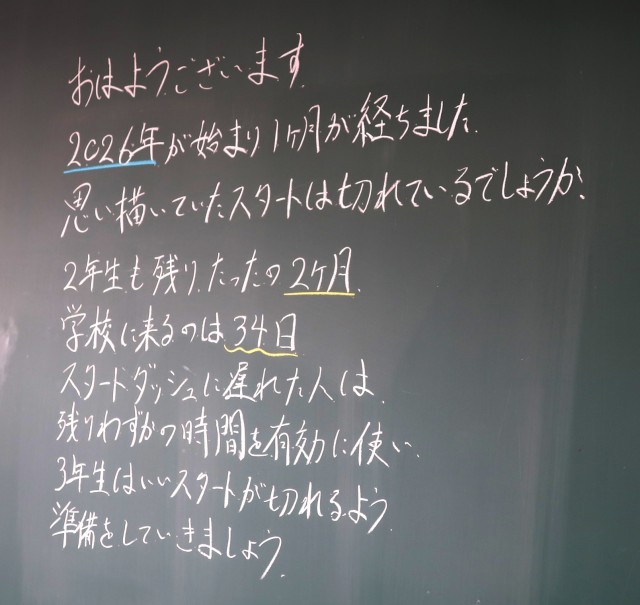 おはようございます.
2026年が始まり1ヶ月が経ちました.
思い描いていたスタートは切れているでしょうか.
2年生も残りたったの2ケ月.
学校に来るのは34日
スタートダッシュに遅れた人は.
残りわずかの時間を有効に使い.
3年生はいいスタートが切れるよう
準備をしていきましょう.